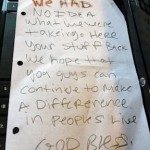 We HAD
NO IDEA
what we were
takeing. Here
Your stuff Back
We hope that
you guys can
continue to Make
A Difference
in people's Live
GOD BLESS.